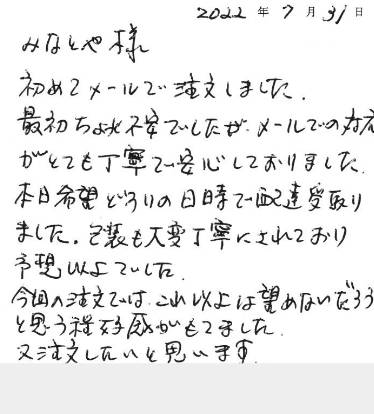 2022年7月31日
みなとや様
初めてメールで注文しました.
最初ちょっと不安でしたが、メールでの対応
がとても丁寧で安心しておりました.
本日希望どうりの日時で配達受取り
ました。包装も大変丁寧にされており
予想以上でした.
今回の注文では、これ以上は望めないだろう
と思う程好感がもてました.
又注文したいと思います.